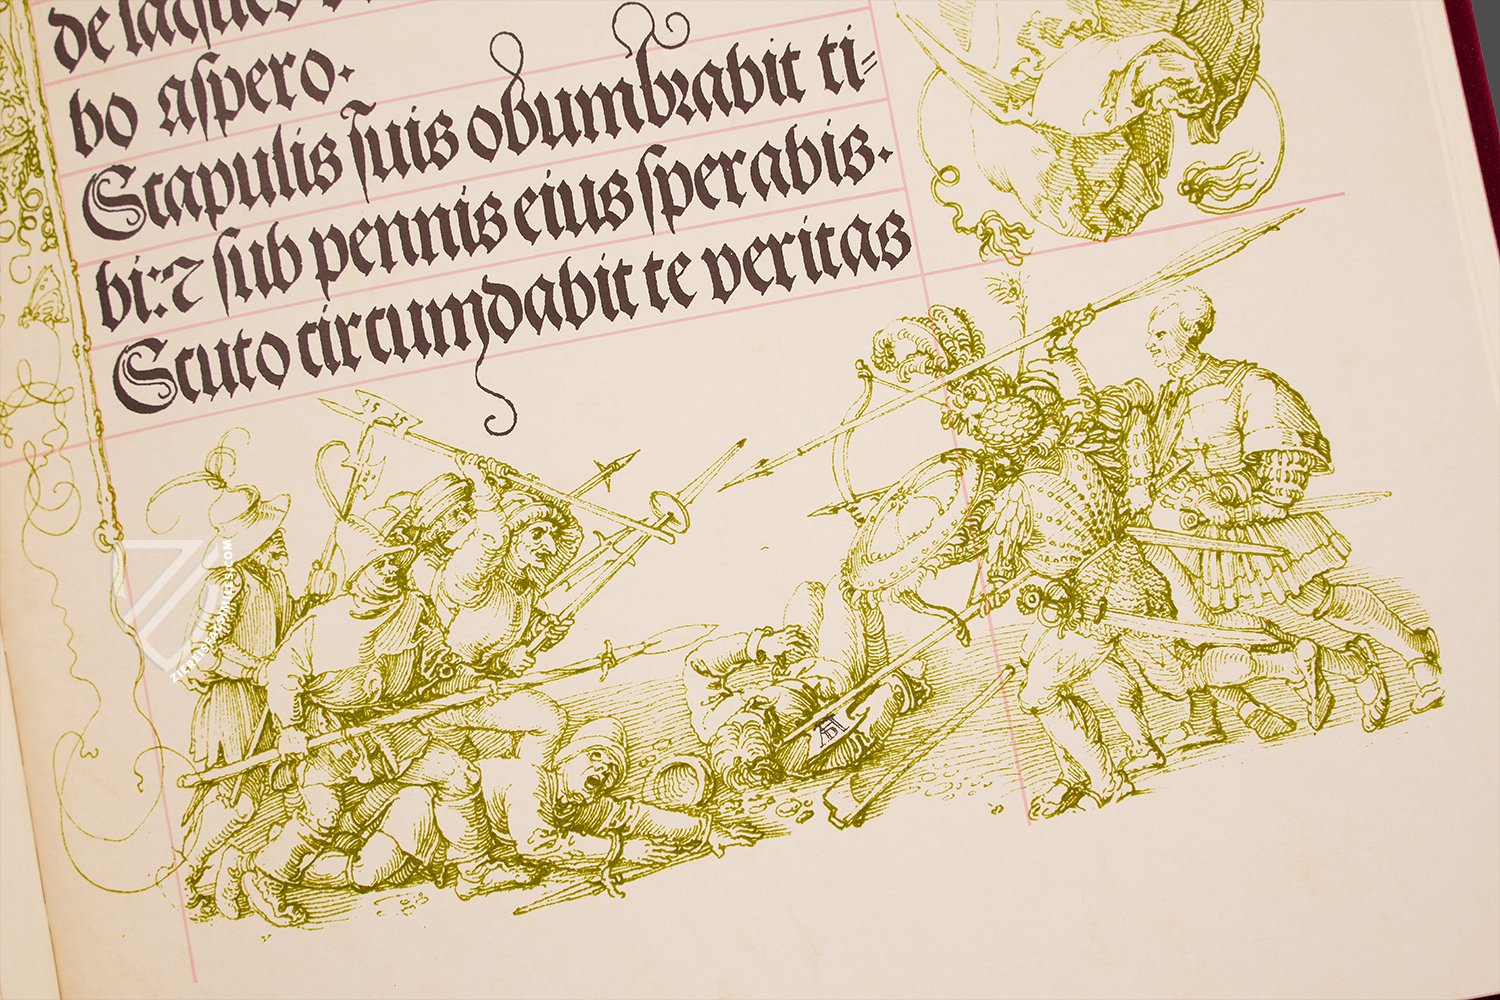 de laqueo
bo aſpero.
Scapulis ſuis obumbrabit ti=
bi: ⁊ ſub pennis eius ſperabis.
Scuto circumdabit te veritas